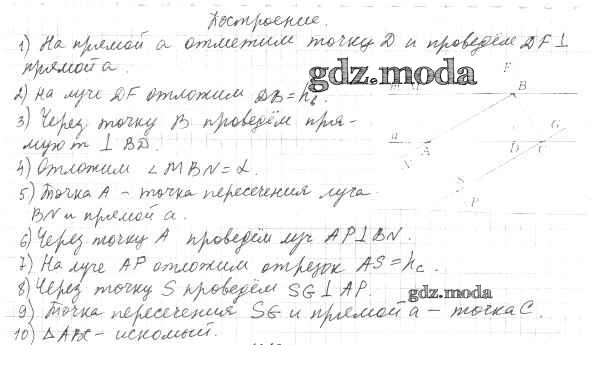 Построение.
1) На прямой a отметим точку D и проведём DF⊥
прямой a.
gdz.moda
2) На луче DF отложим DB = h
3) Через точку B проведём пря-
мую m ⊥ BD.
4) Отложим ∠MBN = α.
5) Точка A – точка пересечения луча
BN и прямой a.
6) Через точку A проведём луч AP⊥BN.
7) На луче AP отложим отрезок AS = hc
8) Через точку S проведём SG ⊥ AP.
gdz.moda
9) Точка пересечения SG и прямой a – точка C.
10) △ABC – искомый.
F
m B
a A D C G
N
S
P